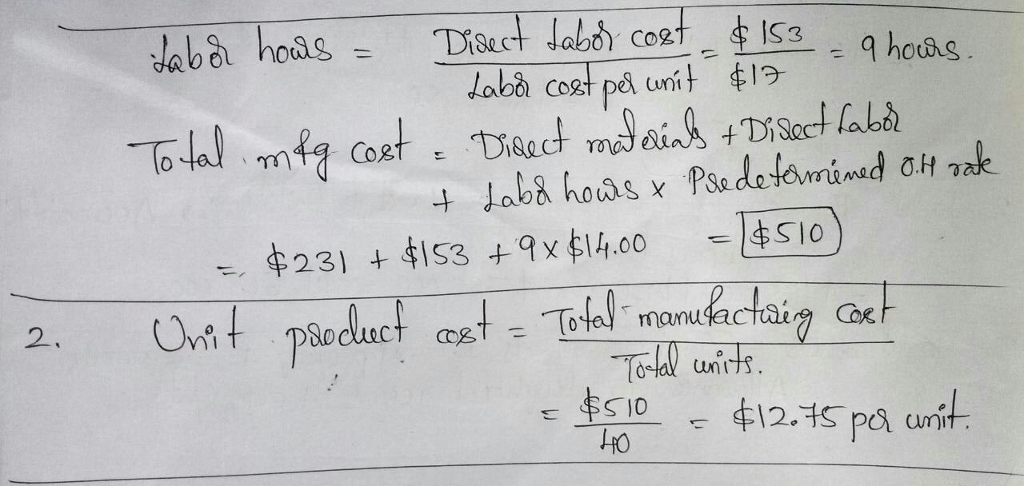 Labor hours = Direct Labor cost / Labor cost per unit = $ 153 / $17 = 9 hours.
Total mfg cost = Direct materials + Direct Labor
+ Labor hours x Predetermined O.H rate
= $231 + $153 + 9 x $14.00 = $510
2. Unit product cost = Total manufacturing cost / Total units.
= $510 / 40 = $12.75 per unit.